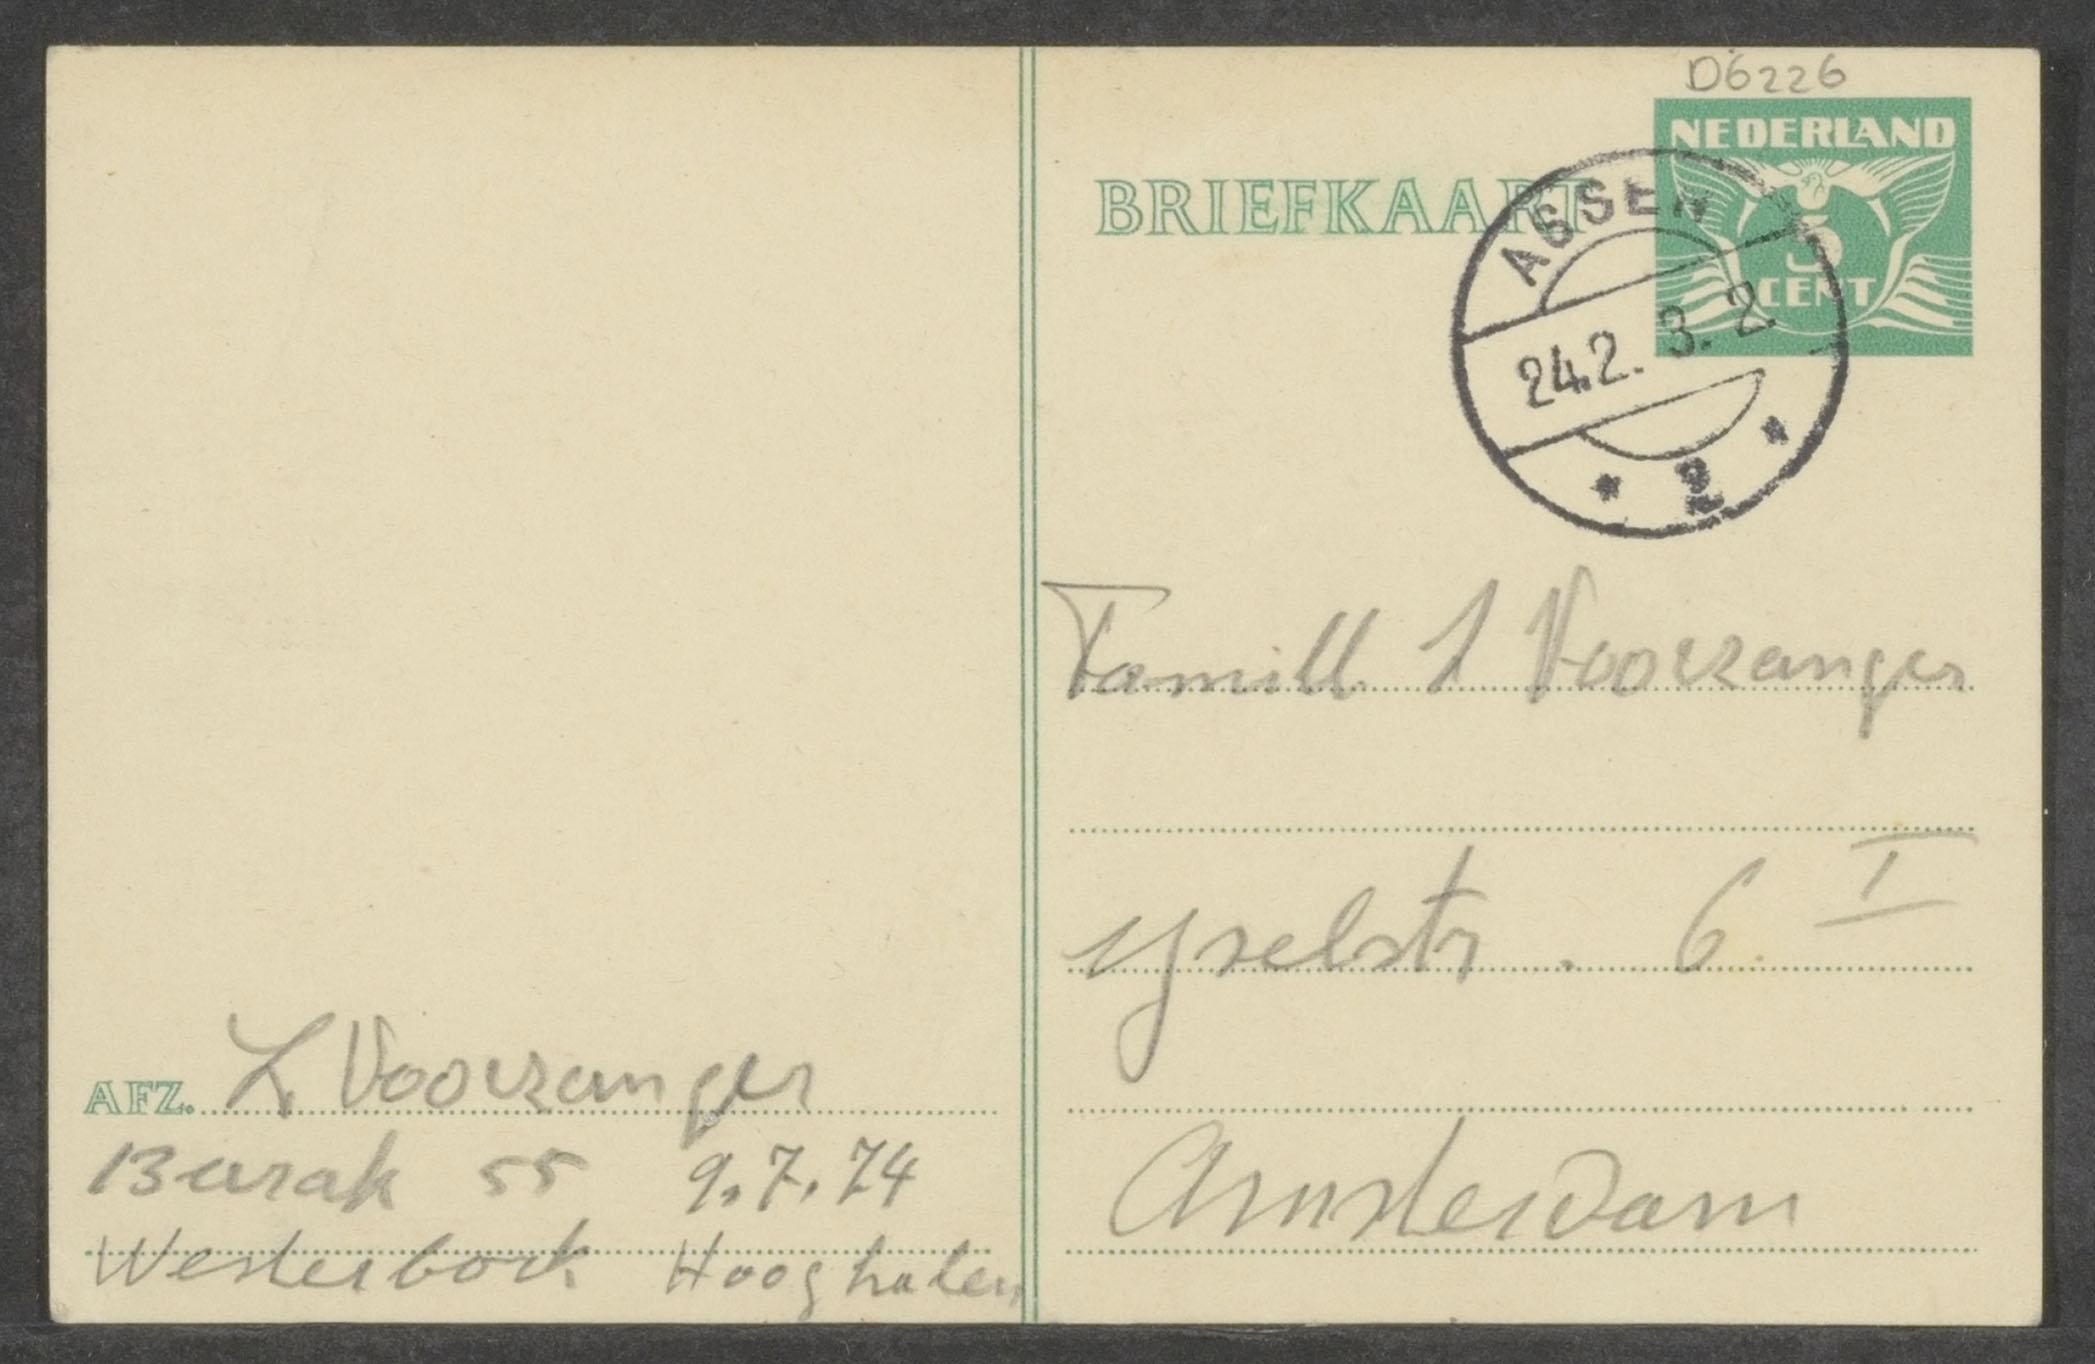 D6226
NEDERLAND
5
CENT
BRIEFKAART
ASSEN
24.2. 3. 2
2
Famill I Voorzanger
Yselstr. 6 I
Amsterdam
AFZ. L Voorzanger
Barak 55 9.7.74
Westerbork Hooghalen